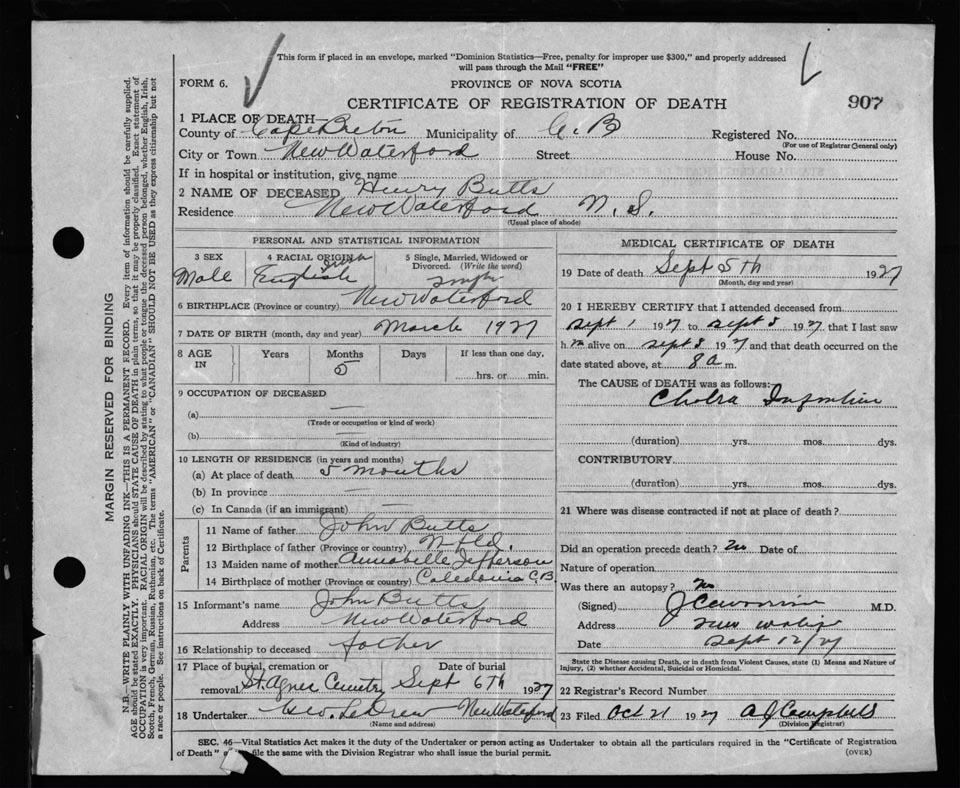 This form if placed in an envelope, marked "Dominion Statistics—Free, penalty for improper use $300," and properly addressed
will pass through the Mail "FREE"
FORM 6.
PROVINCE OF NOVA SCOTIA
CERTIFICATE OF REGISTRATION OF DEATH
907
1 PLACE OF DEATH—
County of Cape Breton Municipality of C. B Registered No.
(For use of Registrar General only)
City or Town New Waterford Street House No.
If in hospital or institution, give name
2 NAME OF DECEASED Henry Butts
Residence New Waterford N. S.
(Usual place of abode)
PERSONAL AND STATISTICAL INFORMATION
3 SEX 4 RACIAL ORIGIN 5 Single, Married, Widowed or Divorced. (Write the word)
Male English single
6 BIRTHPLACE (Province or country) New Waterford
7 DATE OF BIRTH (month, day and year) March 1927
8 AGE IN Years Months Days If less than one day,
5 hrs. or min.
9 OCCUPATION OF DECEASED
(a) —
(Trade or occupation or kind of work)
(b) —
(Kind of industry)
10 LENGTH OF RESIDENCE (in years and months)
(a) At place of death 5 months
(b) In province —
(c) In Canada (if an immigrant) —
Parents
11 Name of father John Butts
12 Birthplace of father (Province or country) Nfld.
13 Maiden name of mother Annabelle Jefferson
14 Birthplace of mother (Province or country) Caledonia C.B.
15 Informant's name John Butts
Address New Waterford
16 Relationship to deceased father
17 Place of burial, cremation or removal St. Agnes Cemetry Date of burial Sept 6th 1927
18 Undertaker Geo. LeDrew New Waterford
(Name and address)
MEDICAL CERTIFICATE OF DEATH
19 Date of death Sept 5th 1927
(Month, day and year)
20 I HEREBY CERTIFY that I attended deceased from
Sept 1 1927 to Sept 5 1927 that I last saw
h m alive on Sept 1927 and that death occurred on the
date stated above, at 8 a m.
The CAUSE OF DEATH was as follows:
Cholra Infantum
(duration) yrs. mos. dys.
CONTRIBUTORY
(duration) yrs. mos. dys.
21 Where was disease contracted if not at place of death?
Did an operation precede death? no Date of
Nature of operation
Was there an autopsy? no
(Signed) M.D.
Address New
Date Sept 12/27
State the Disease causing Death, or in death from Violent Causes, state (1) Means and Nature of
Injury, (2) whether Accidental, Suicidal or Homicidal.
22 Registrar's Record Number
23 Filed Oct 21 1927 A J Campbell
(Division Registrar)
SEC. 46—Vital Statistics Act makes it the duty of the Undertaker or person acting as Undertaker to obtain all the particulars required in the "Certificate of Registration
of Death" file the same with the Division Registrar who shall issue the burial permit.
(OVER)
MARGIN RESERVED FOR BINDING
N.B.—WRITE PLAINLY WITH UNFADING INK—THIS IS A PERMANENT RECORD. Every item of information should be carefully supplied.
AGE should be stated EXACTLY. PHYSICIANS should STATE CAUSE OF DEATH in plain terms, so that it may be properly classified. Exact statement of
OCCUPATION is very important. RACIAL ORIGIN will be described by stating to what people or tongue the deceased person belonged, whether English, Irish,
Scotch, French, German, Russian, Ruthenian, etc. The terms "AMERICAN" or "CANADIAN" SHOULD NOT BE USED as they express citizenship but not
a race or people. See instructions on back of Certificate.